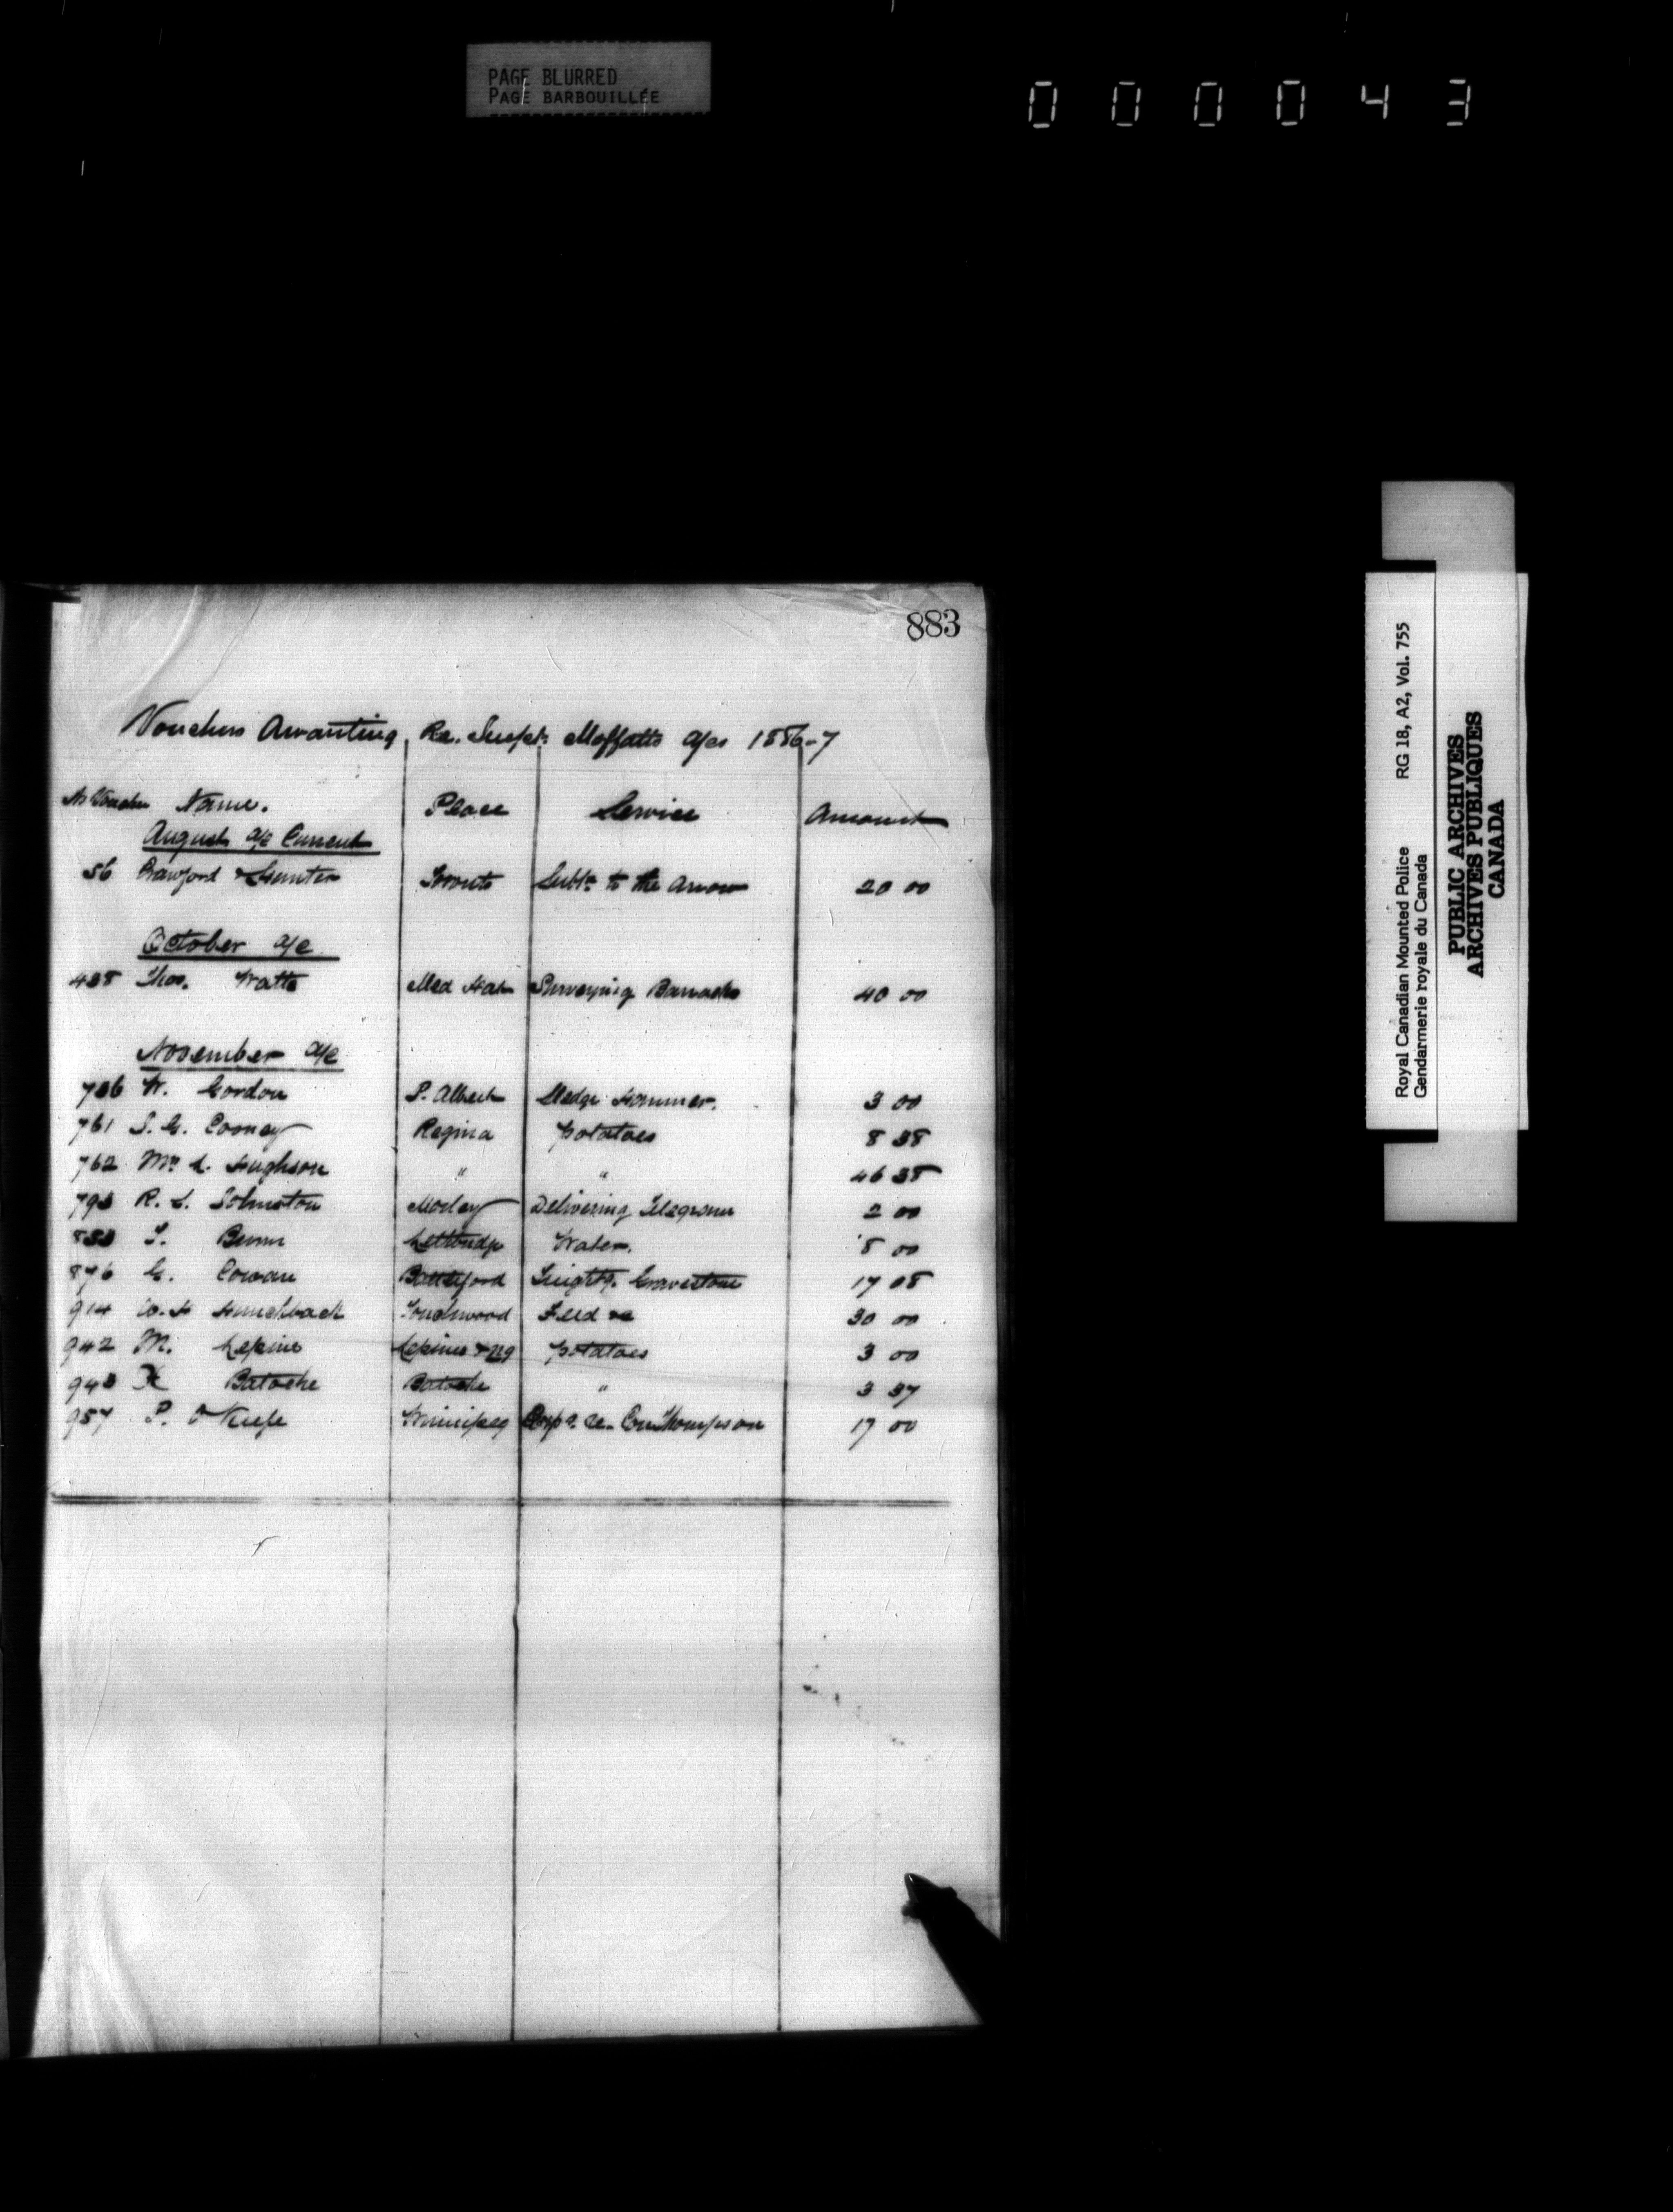 PAGE BLURRED
PAGE BARBOUILLÉE
0 0 0 0 4 3
883
Vouchers Awanting Re. Inspt. Moffatts a/cs 1886-7
No Voucher Name. Place Service Amount
August a/c Current
56 Crawford & Hunter Toronto Subn. to the Arrow 20 00
October a/c
438 Thos. Watts Med Hat Surveying Barracks 40 00
November a/c
736 W. Gordon P. Albert Sledge Hammer. 3 00
761 S. G. Cooney Regina potatoes 8 38
762 Mrs L. Hughson " " 46 38
793 R. L. Johnston Morley Delivering Telegram 2 00
833 T. Lethbridge Water. 8 00
876 G. Cowan Battleford Freight Gravestone 17 08
914 W. H Touchwood Feed &c 30 00
942 M. Lepine Lepines potatoes 3 00
943 X Batoche Batoche " 3 37
957 P. O'Keefe Winnipeg Thompson 17 00
Royal Canadian Mounted Police RG 18, A2, Vol. 755
Gendarmerie royale du Canada
PUBLIC ARCHIVES
ARCHIVES PUBLIQUES
CANADA